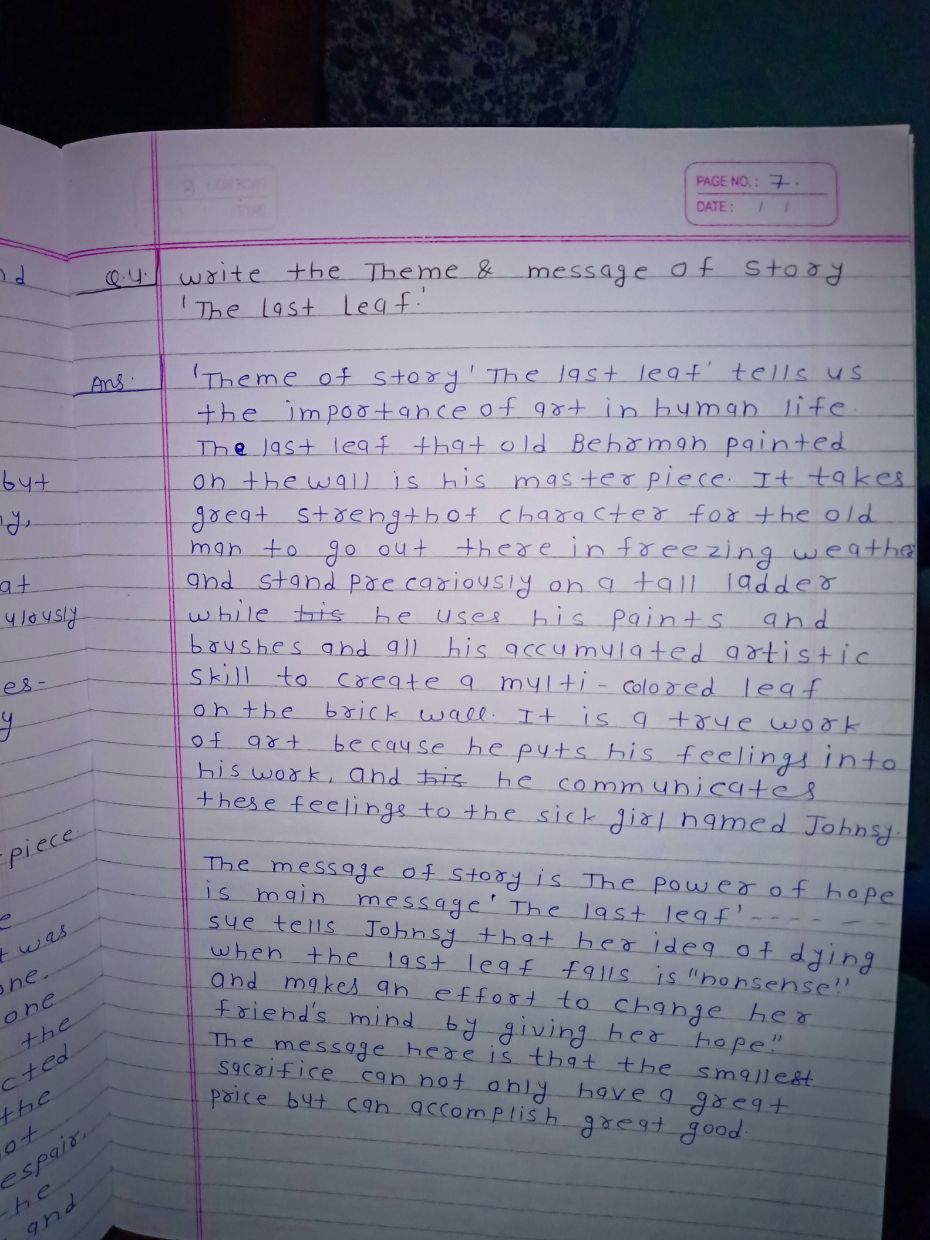 PAGE NO.: 7.
DATE: / /
Q.4. write the Theme & message of story
'The last leaf.'
Ans. 'Theme of story' The last leaf' tells us
the importance of art in human life.
The last leaf that old Behrman painted
on the wall is his masterpiece. It takes
great strength of character for the old
man to go out there in freezing weather
and stand precariously on a tall ladder
while his he uses his paints and
brushes and all his accumulated artistic
skill to create a multi-colored leaf
on the brick wall. It is a true work
of art because he puts his feelings into
his work, and his he communicates
these feelings to the sick girl named Johnsy.
The message of story is The power of hope
is main message' The last leaf'- - - - - -
sue tells Johnsy that her idea of dying
when the last leaf falls is "nonsense!"
and makes an effort to change her
friend's mind by giving her hope."
The message here is that the smallest
sacrifice can not only have a great
price but can accomplish great good.
but
at
ulously
es-
y
piece
e
t was
one.
one
the
cted
the
ot
espair.
he
and